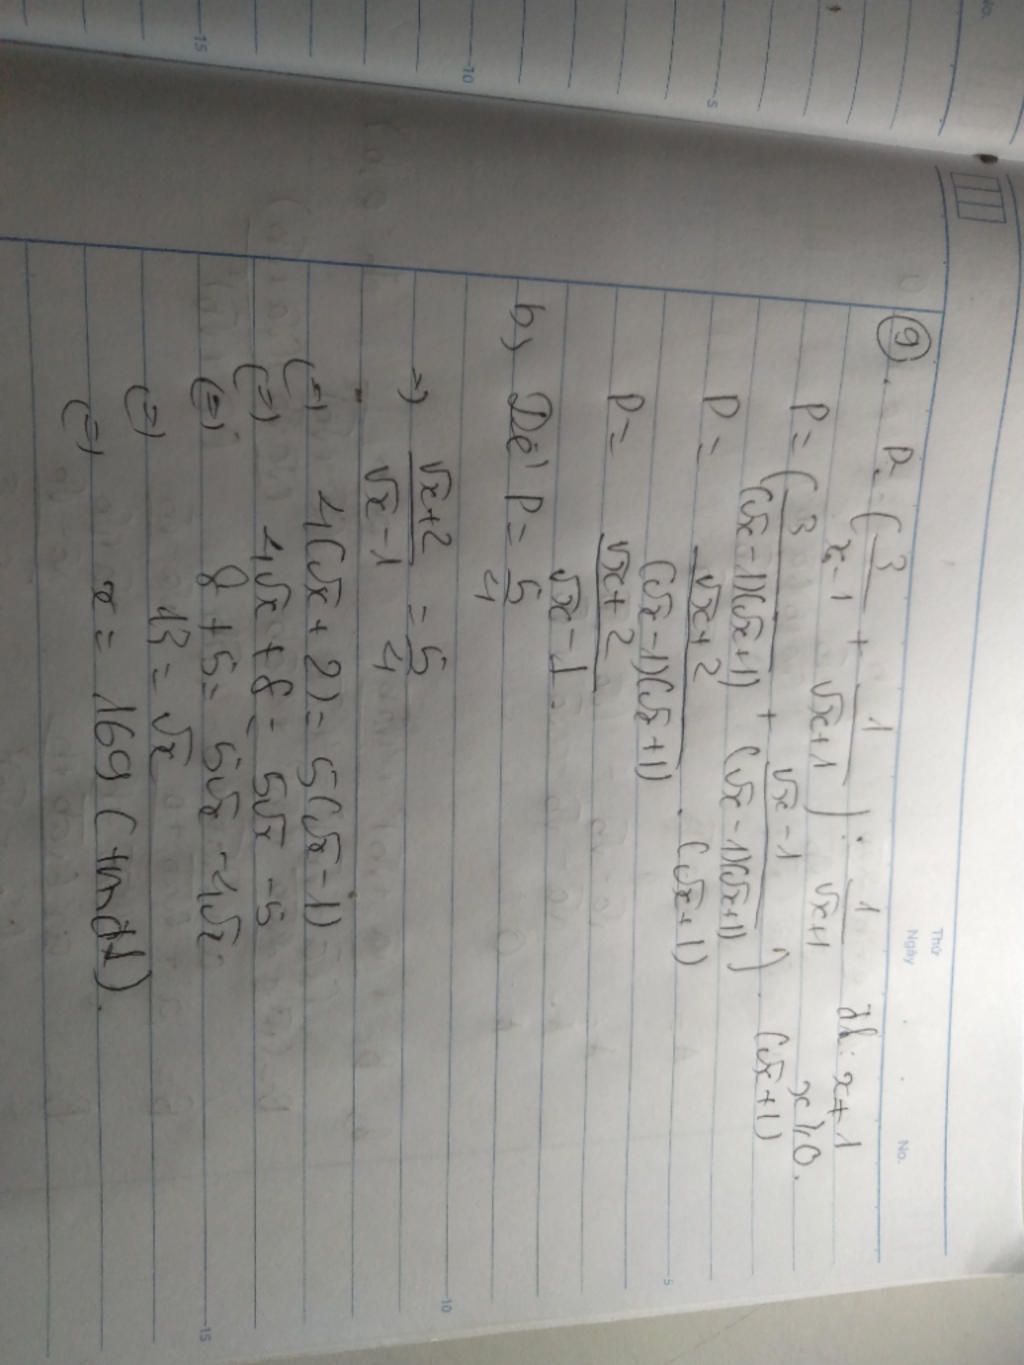 Thứ
Ngày . . No.
9. P = ( 3/(x-1) + 1/(√x+1) ) : 1/(√x+1) đk: x ≠ 1
x ≥ 0.
P = ( 3/((√x-1)(√x+1)) + (√x-1)/((√x-1)(√x+1)) ) . (√x+1)
P = (√x+2)/((√x-1)(√x+1)) . (√x+1)
P = (√x+2)/(√x-1).
b, Để P = 5/4
=> (√x+2)/(√x-1) = 5/4
(=) 4(√x+2) = 5(√x-1)
(=) 4√x + 8 = 5√x - 5
(=) 8 + 5 = 5√x - 4√x
(=) 13 = √x
(=) x = 169 (tmđk).
5
10
15
5
10
15
No.